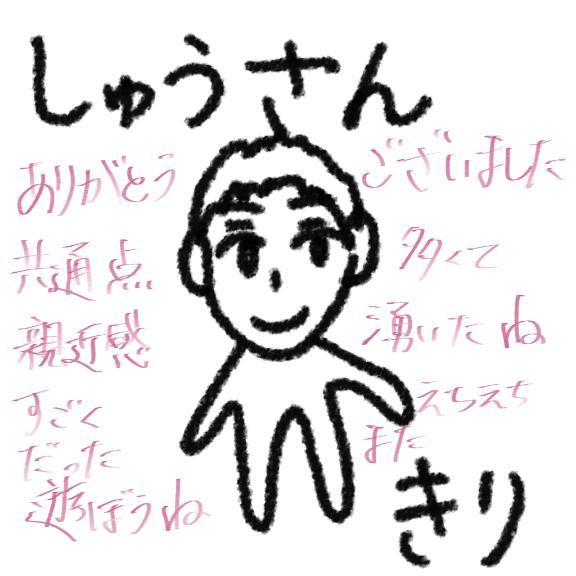 しゅうさん
ありがとう ございました
共通点 多くて
親近感 湧いたね
すごく えちえち
だった また
遊ぼうね
きり